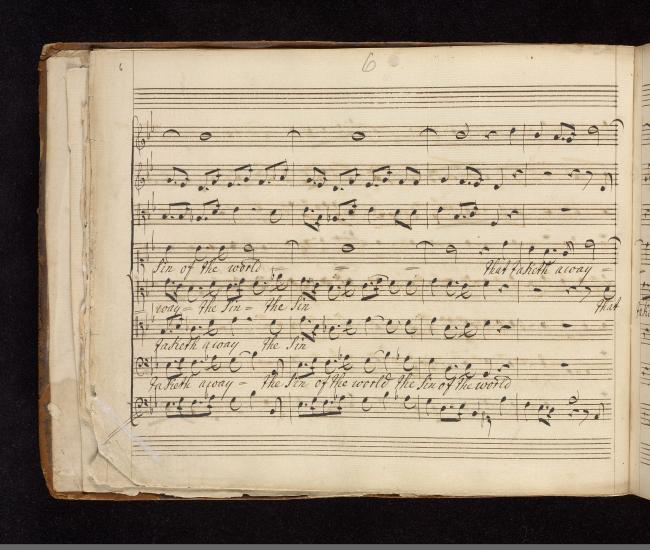 6
6
Sin of the world - - - that taketh away -
away - the Sin - the Sin that
taketh away the Sin
taketh away - the Sin of the world the Sin of the world